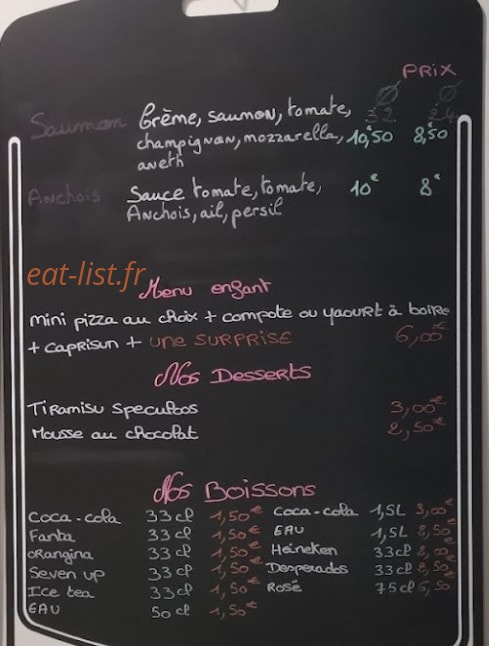 PRIX
32 24
Saumon Crème, saumon, tomate,
champignon, mozzarella, 10,50 8,50
aneth
Anchois Sauce tomate, tomate, 10€ 8€
Anchois, ail, persil
eat-list.fr
Menu enfant
mini pizza au choix + compote ou yaourt à boire
+ caprisun + une SURPRISE 6,00€
Nos Desserts
Tiramisu Speculoos 3,00€
Mousse au chocolat 2,50€
Nos Boissons
Coca-cola 33cl 1,50€ Coca-cola 1,5L 3,00€
Fanta 33cl 1,50€ EAU 1,5L 2,50€
Orangina 33cl 1,50€ Heineken 33cl 2,00€
Seven up 33cl 1,50€ Desperados 33cl 2,50€
Ice tea 33cl 1,50€ Rosé 75cl 6,50
EAU 50cl 1,50€